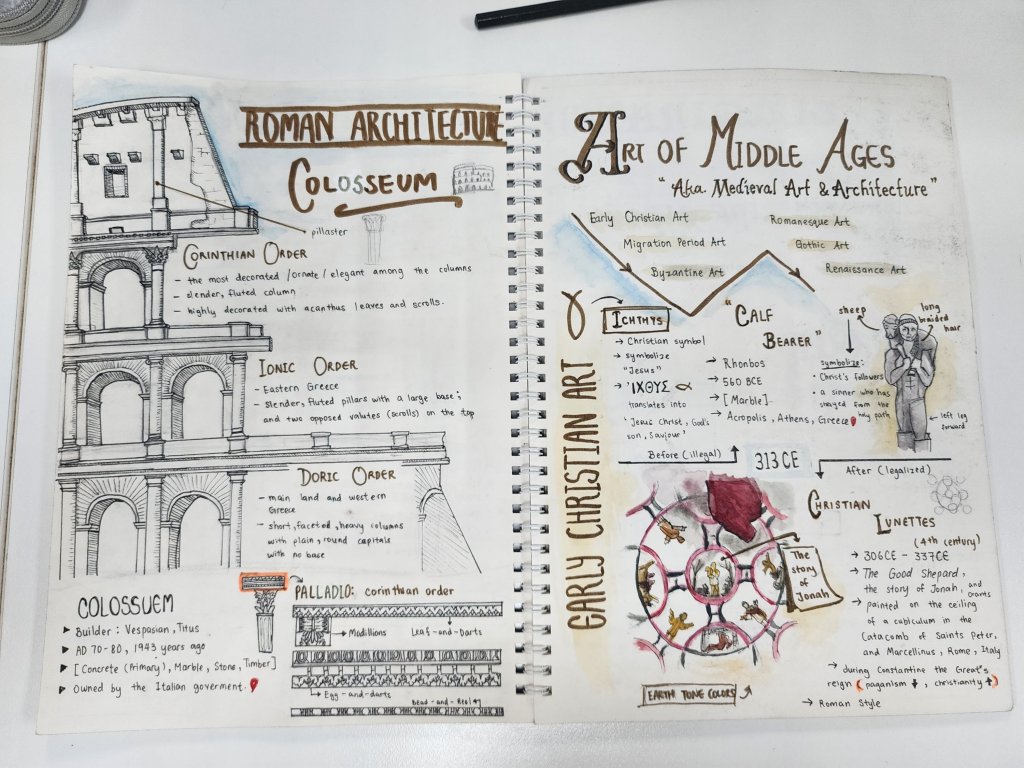 ROMAN ARCHITECTURE
COLOSSEUM
pillaster
CORINTHIAN ORDER
- the most decorated /ornate / elegant among the columns
- slender, fluted column
- highly decorated with acanthus leaves and scrolls.
IONIC ORDER
- Eastern Greece
- Slender, fluted pillars with a large base;
and two opposed valutes (scrolls) on the top
DORIC ORDER
- main land and western
Greece
- short, faceted, heavy columns
with plain, round capitals
with no base
COLOSSUEM
▶ Builder: Vespasian, Titus
▶ AD 70-80, 1943 years ago
▶ [Concrete (Primary), Marble, Stone, Timber]
▶ Owned by the Italian goverment.
PALLADIO: corinthian order
→ Modillions
Leaf-and-Darts
→ Egg-and-darts
bead-and-
ART OF MIDDLE AGES
"Aka. Medieval Art & Architecture"
Early Christian Art
Migration Period Art
Byzantine Art
Romanesque Art
Gothic Art
Renaissance Art
EARLY CHRISTIAN ART
ICHTHYS
→ Christian symbol
→ symbolize
"Jesus"
→ 'ΙΧΘΥΣ
translates into
'Jesus Christ, God's
son, Saviour'
"CALF
BEARER"
→ Rhonbos
→ 560 BCE
→ [Marble]
→ Acropolis, Athens, Greece
sheep
long
braided
hair
symbolize:
• Christ's followers
• a sinner who has
strayed from the
holy path
left leg
forward
Before (illegal)
313 CE
After (legalized)
CHRISTIAN
LUNETTES
(4th century)
→ 306CE - 337CE
→ The Good Shepard,
the story of Jonah, and
orants
→ painted on the ceiling
of a cubiculum in the
Catacomb of Saints Peter,
and Marcellinus, Rome, Italy
→ during Constantine the Great's
reign (paganism ↓, christianity ↑)
→ Roman Style
The
story
of
Jonah
EARTH TONE COLORS